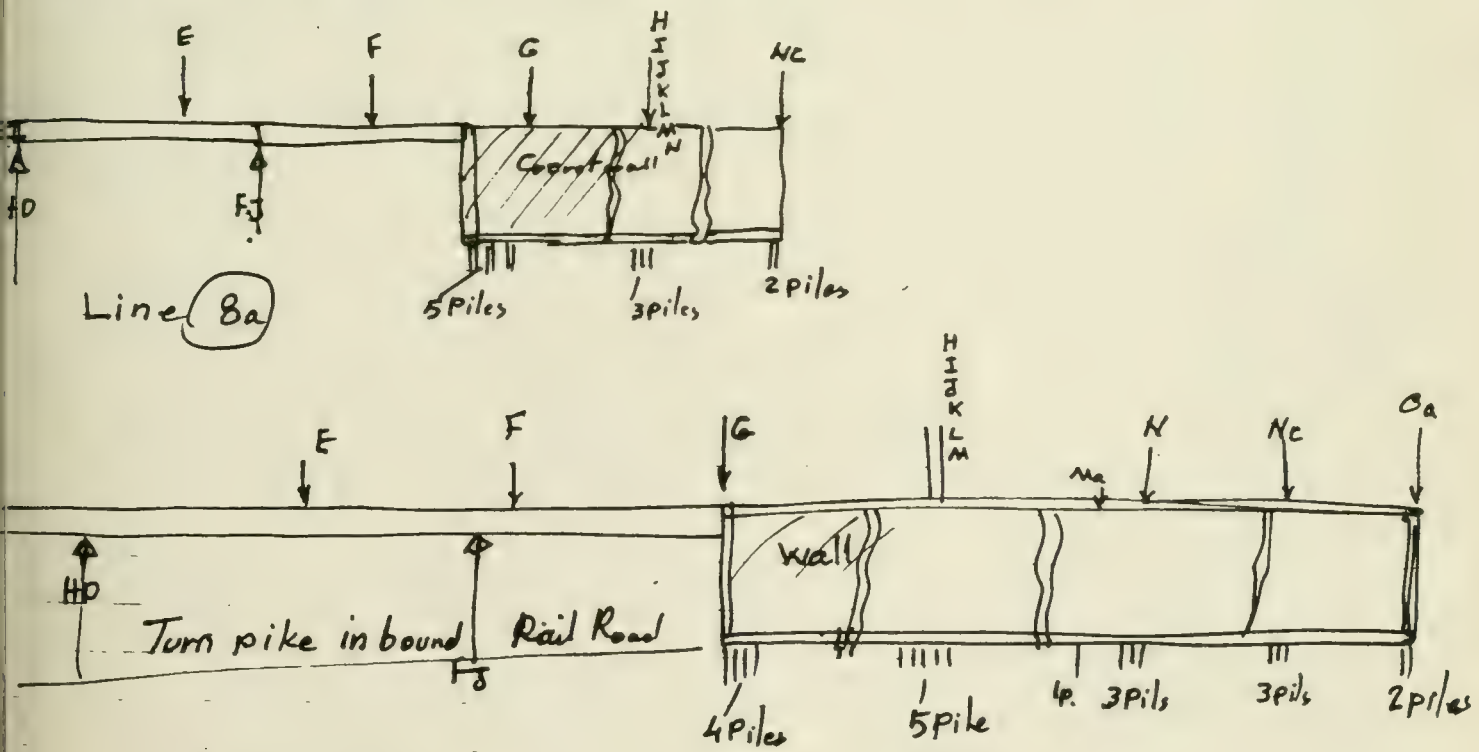 E F G H I J K L M N NC
Wall
HD FJ
5 Piles 3 Piles 2 Piles
Line 8a
E F G H I J K L M Ma N Nc Oa
Wall
HD Turn pike in bound FJ Rail Road
4 Piles 5 Pile 1p. 3 Pils 3 pils 2 piles